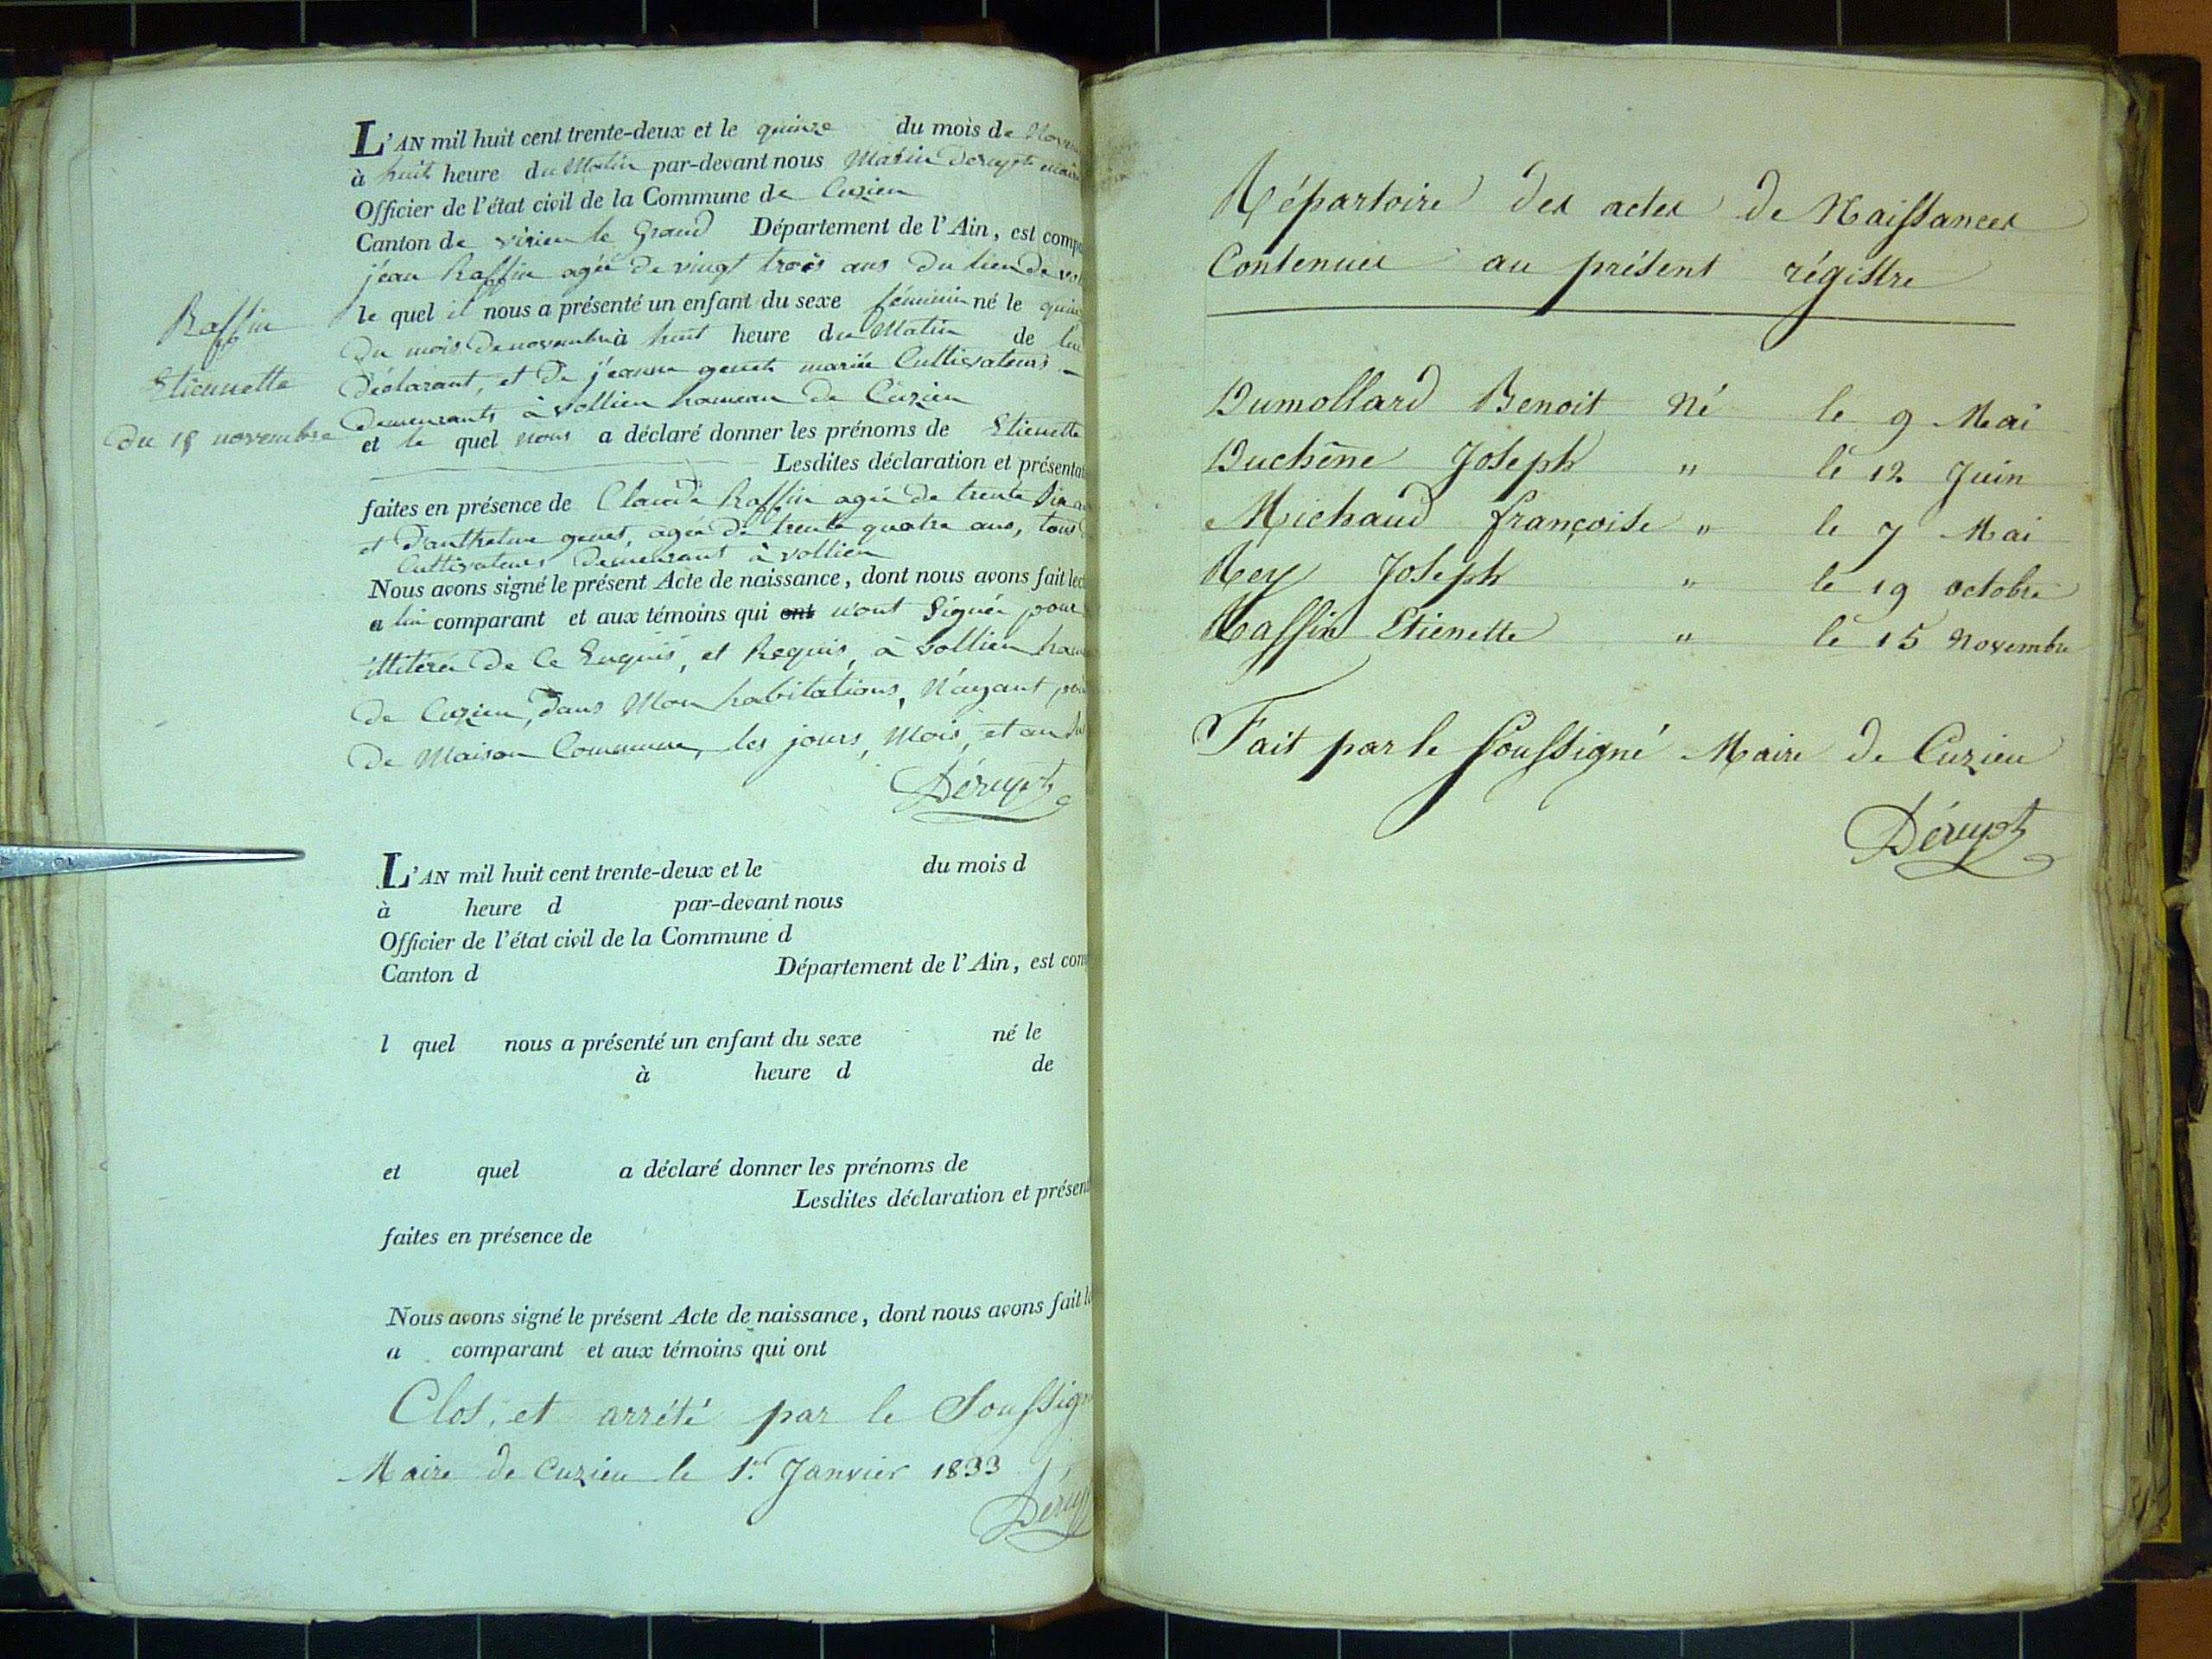 L'AN mil huit cent trente-deux et le quinze du mois de
à huit heure du Matin par-devant nous
Officier de l'état civil de la Commune de Cuzieu
Canton de virieu le Grand Département de l'Ain, est comp
jéan Raffin agée de vingt trois ans du lieu de vol
le quel il nous a présenté un enfant du sexe féminin né le quin
Du mois de novembre à huit heure du Matin de lui
Déclarant, et de jéanne genet mariée Cultivateurs
Demeurants à vollien hameau de Cuzieu
et le quel nous a déclaré donner les prénoms de Etienette
Lesdites déclaration et présentat
faites en présence de Claude Raffin agée de trente six
et d'anthelme genet, agée de trente quatre ans, tous
Cultivateurs Demeurant à vollien
Nous avons signé le présent Acte de naissance, dont nous avons fait lec
a lui comparant et aux témoins qui ont n'ont Signée pour
illiterée de Ce Enquis, et Requis, à vollien ham
de Cuzieu, dans Mon habitations, N'ayant
de Maison Commune, les jours, Mois, et an
Déruyst
Raffin
Etiennette
Du 15 novembre
L'AN mil huit cent trente-deux et le du mois d
à heure d par-devant nous
Officier de l'état civil de la Commune d
Canton d Département de l'Ain, est com
l quel nous a présenté un enfant du sexe né le
à heure d de
et quel a déclaré donner les prénoms de
Lesdites déclaration et présen
faites en présence de
Nous avons signé le présent Acte de naissance, dont nous avons fait l
a comparant et aux témoins qui ont
Clos, et arrété par le Soussign
Maire de Cuzieu le 1.er Janvier 1833
Répartoire des actes de Naissances
Contenues au présent régistre
Dumollard Benoit Né le 9 Mai
Duchêne Joseph " le 12 Juin
Michaud françoise " le 7 Mai
Rey Joseph " le 19 octobre
Raffin Etienette " le 15 Novembre
Fait par le Soussigné Maire de Cuzieu
Déruyst